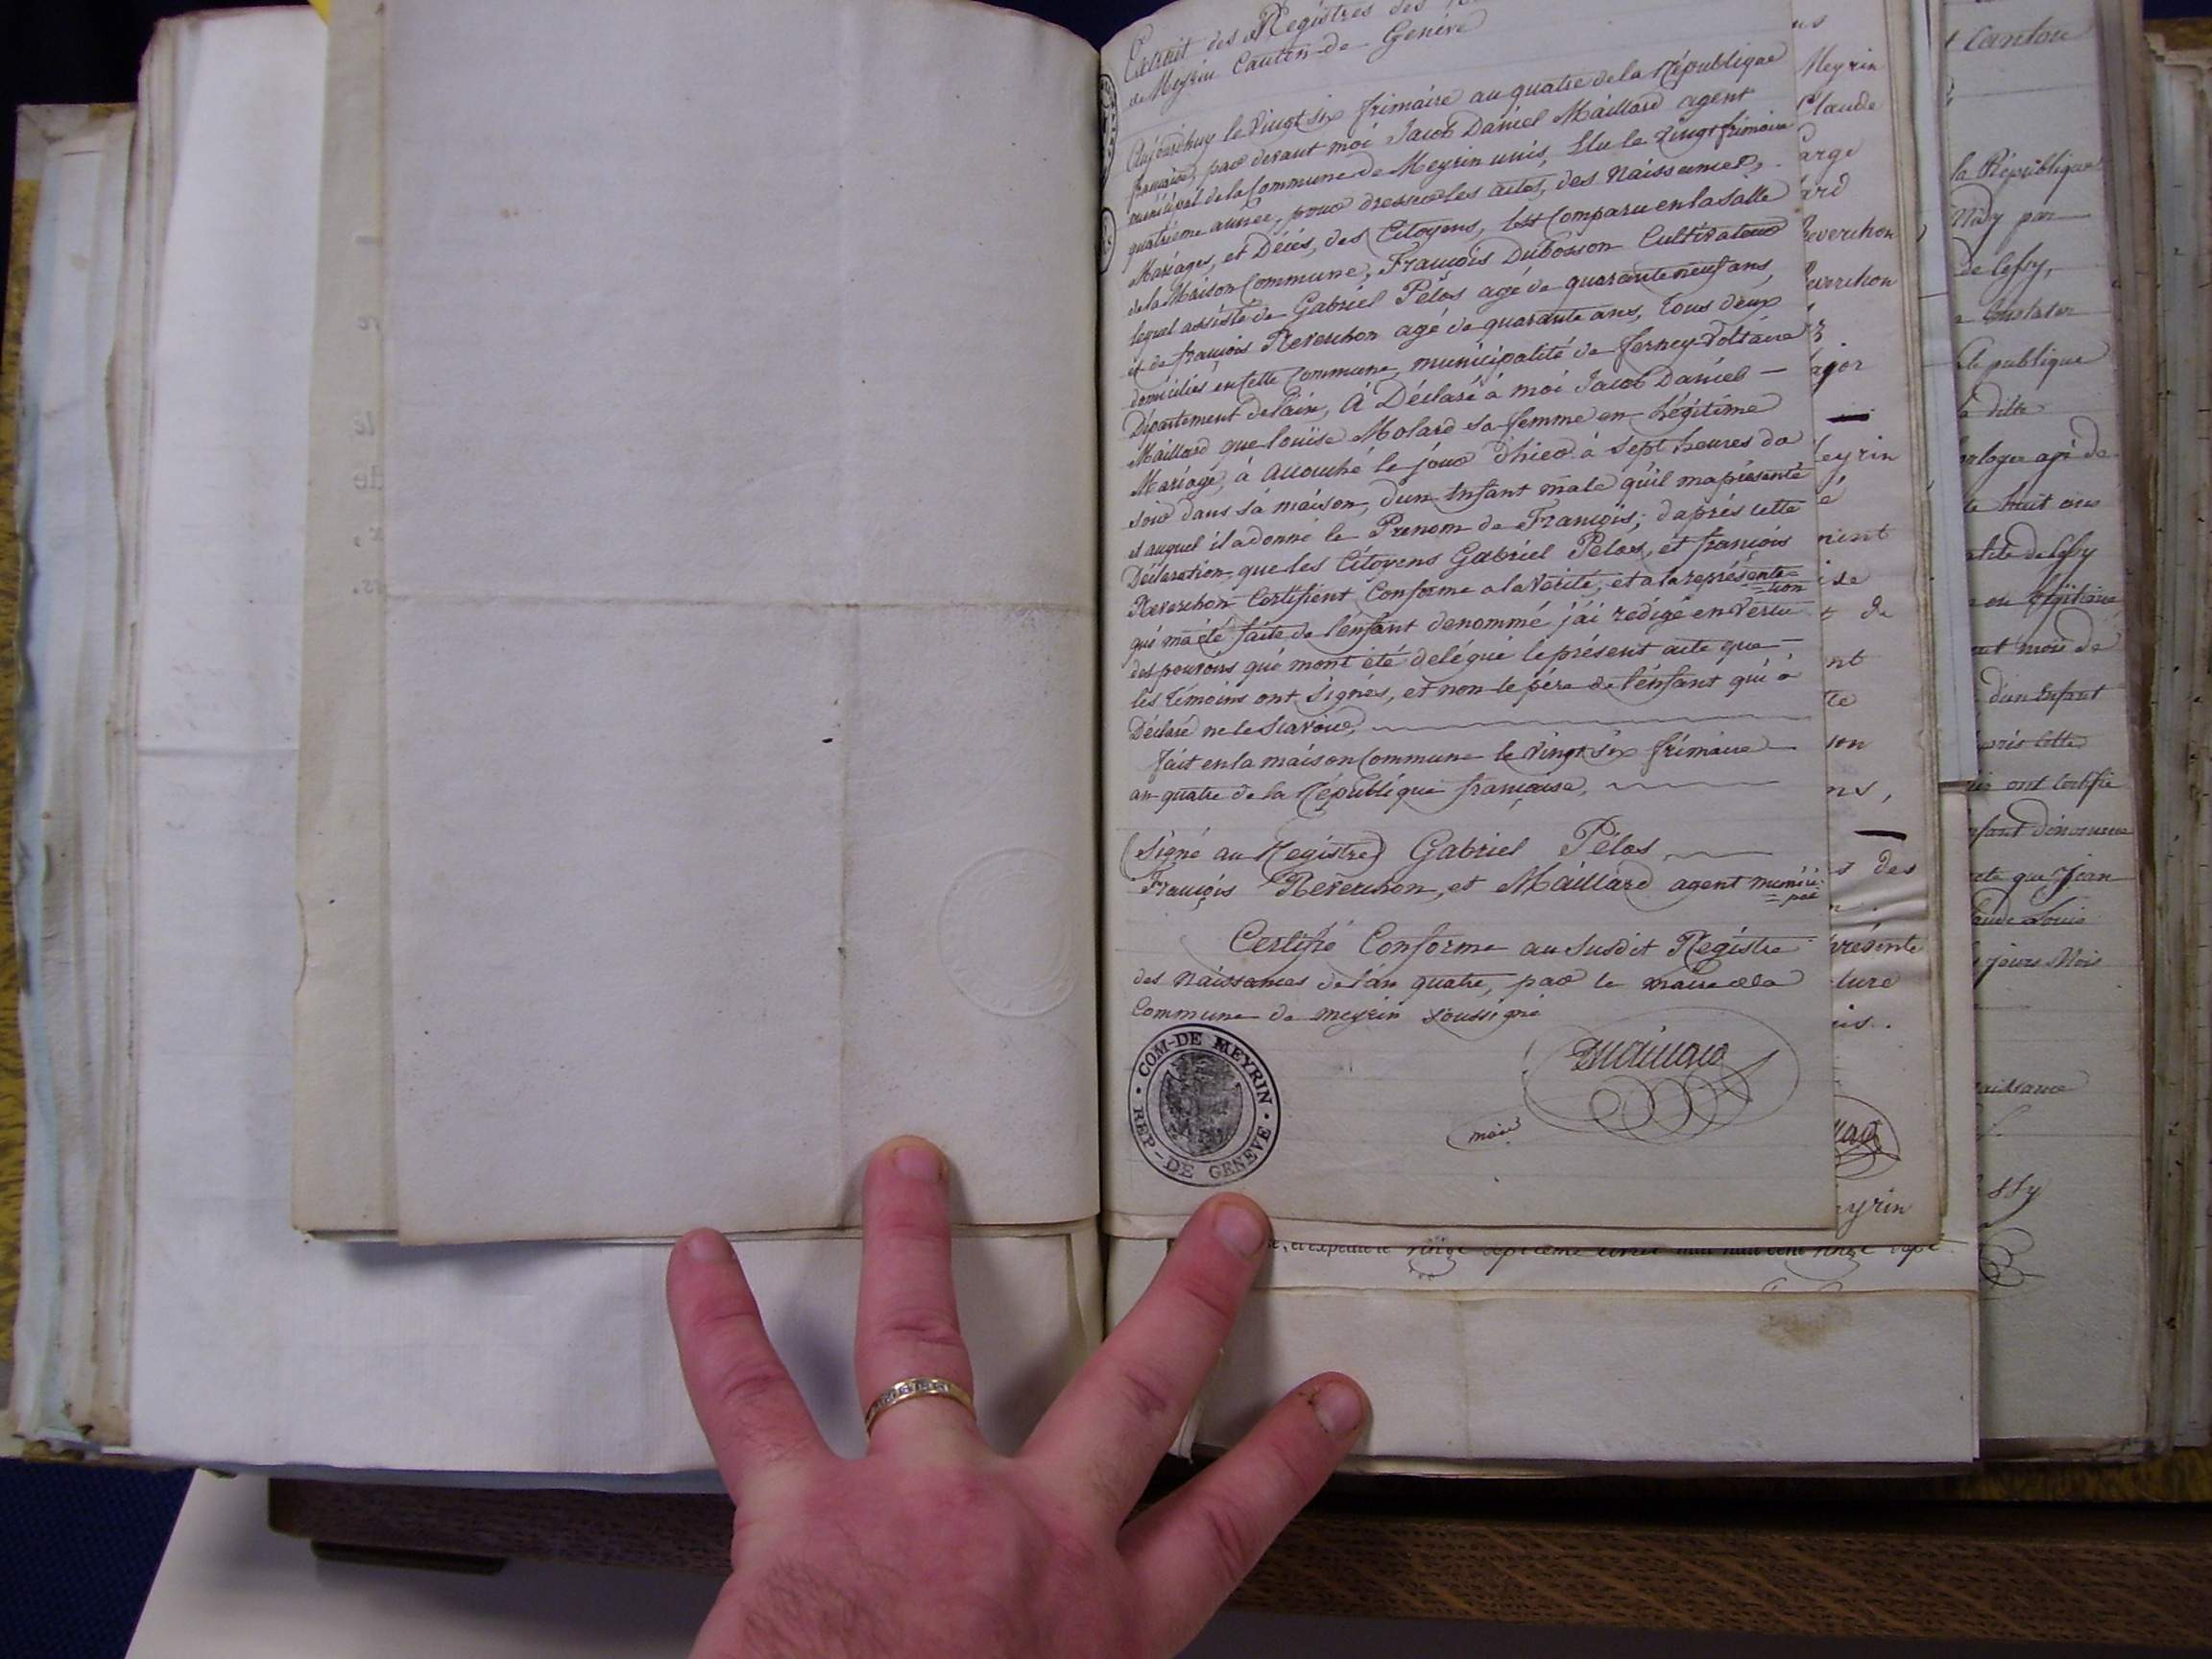 Extrait des Registres des
de Meyrin Canton de Genève
Aujourdhuy le vingt six frimaire an quatre de la République
francaise, par devant moi Jacob Daniel Maillard agent
municipal de la Commune de Meyrin unis, Elu le vingt frimaire
quatrième année, pour dresser les actes, des Naissances,
Mariages, et Décès, des Citoyens, Est Comparu en la Salle
de la Maison Commune, François Dubosson Cultivateur
lequel assisté de Gabriel Pélas agé de quarante neuf ans,
et de françois Reverchon agé de quarante ans, tous deux
domiciliés en cette Commune, municipalité de ferney-Voltaire
Département de l'ain, à Déclaré à moi Jacob Daniel
Maillard que louïse Molard sa femme en Légitime
Mariage, à accouché le jour d'hier à sept heures du
soir dans sa maison, d'un Enfant mâle qu'il ma présenté
et auquel il a donné le Prenom de François; daprès cette
Déclaration, que les Citoyens Gabriel Pélas, et françois
Reverchon Certifient Conforme a la Vérité, et a la représenta=
=tion
qui ma été faite de l'enfant denommé j'ai redigé en vertu
des pouvoirs qui mont été delégué le présent acte que
les témoins ont Signés, et non le père de l'enfant qui à
Déclaré ne le Scavoir,
fait en la maison Commune le vingt six frimaire
an quatre de la République française,
(Signé au Registre) Gabriel Pélas
François Reverchon, et Maillard agent munici=
=pal
Certifié Conforme au Susdit Registre
des Naissances de l'an quatre, par le maire de la
Commune de meyrin soussigné
DMaillard
maire
COM-DE MEYRIN · REP-DE GENEVE ·
Meyrin
Claude
Reverchon
everchon
eyrin
nint
de
des
présente
eyrin
t Canton
la République
par
de Lessy,
publique
la ditte
horloger agé de
huit ans
de Lessy
en légitime
mois de
d'un Enfant
après cette
ont certifié
enfant dénommé
que Jean
Claude Louis
jours Mois
naissance